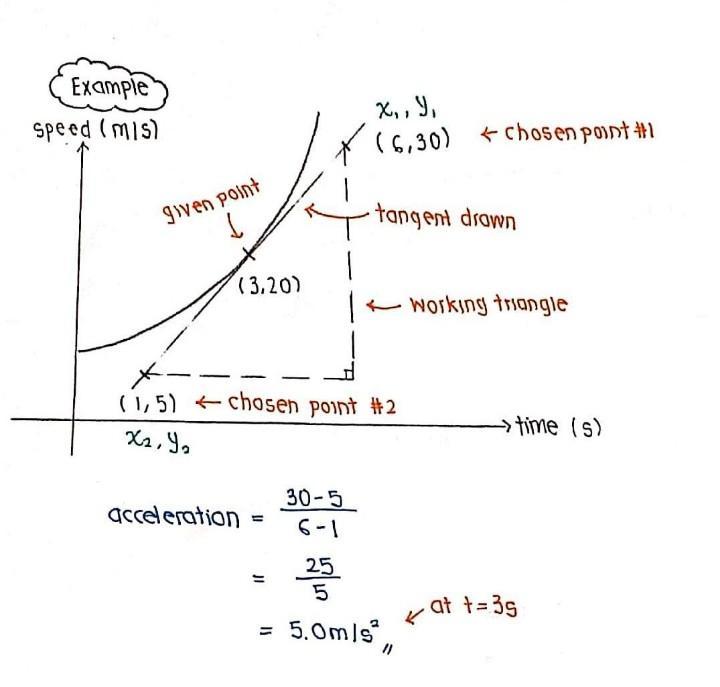 Example
speed (m/s)
x₁, y₁
(6,30) ← chosen point #1
given point
tangent drawn
(3,20)
← working triangle
(1,5) ← chosen point #2
x₂, y₂
time (s)
acceleration = 30-5
6-1
= 25
5
= 5.0m/s² ,,
at t=3s